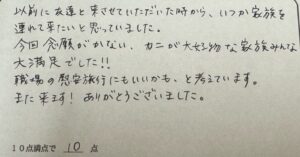 以前に友達と来させていただいた時から、いつか家族を
連れて来たいと思っていました。
今回念願がかない、カニが大好物な家族みんな
大満足でした!!
職場の慰安旅行にもいいかも、と考えています。
また来ます!ありがとうございました。
10点満点で 10 点